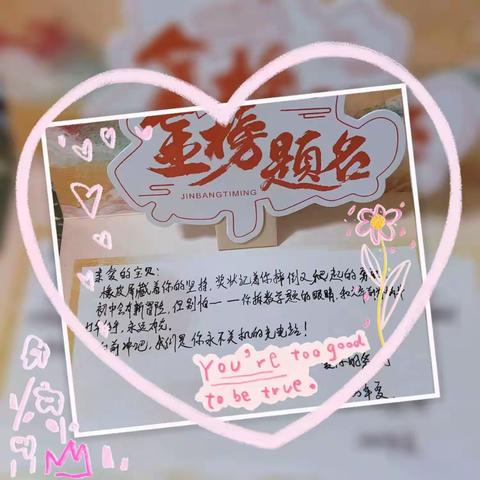 金榜题名
JINBANGTIMING
亲爱的宝贝:
橡皮屑藏着你的坚持,奖状记着你摔倒又爬起的勇
初中会有新冒险,但别怕——你拆数学题的眼睛,和
永远有光
前冲吧,我们是你永不关机的充电站!
You're too good
to be true.